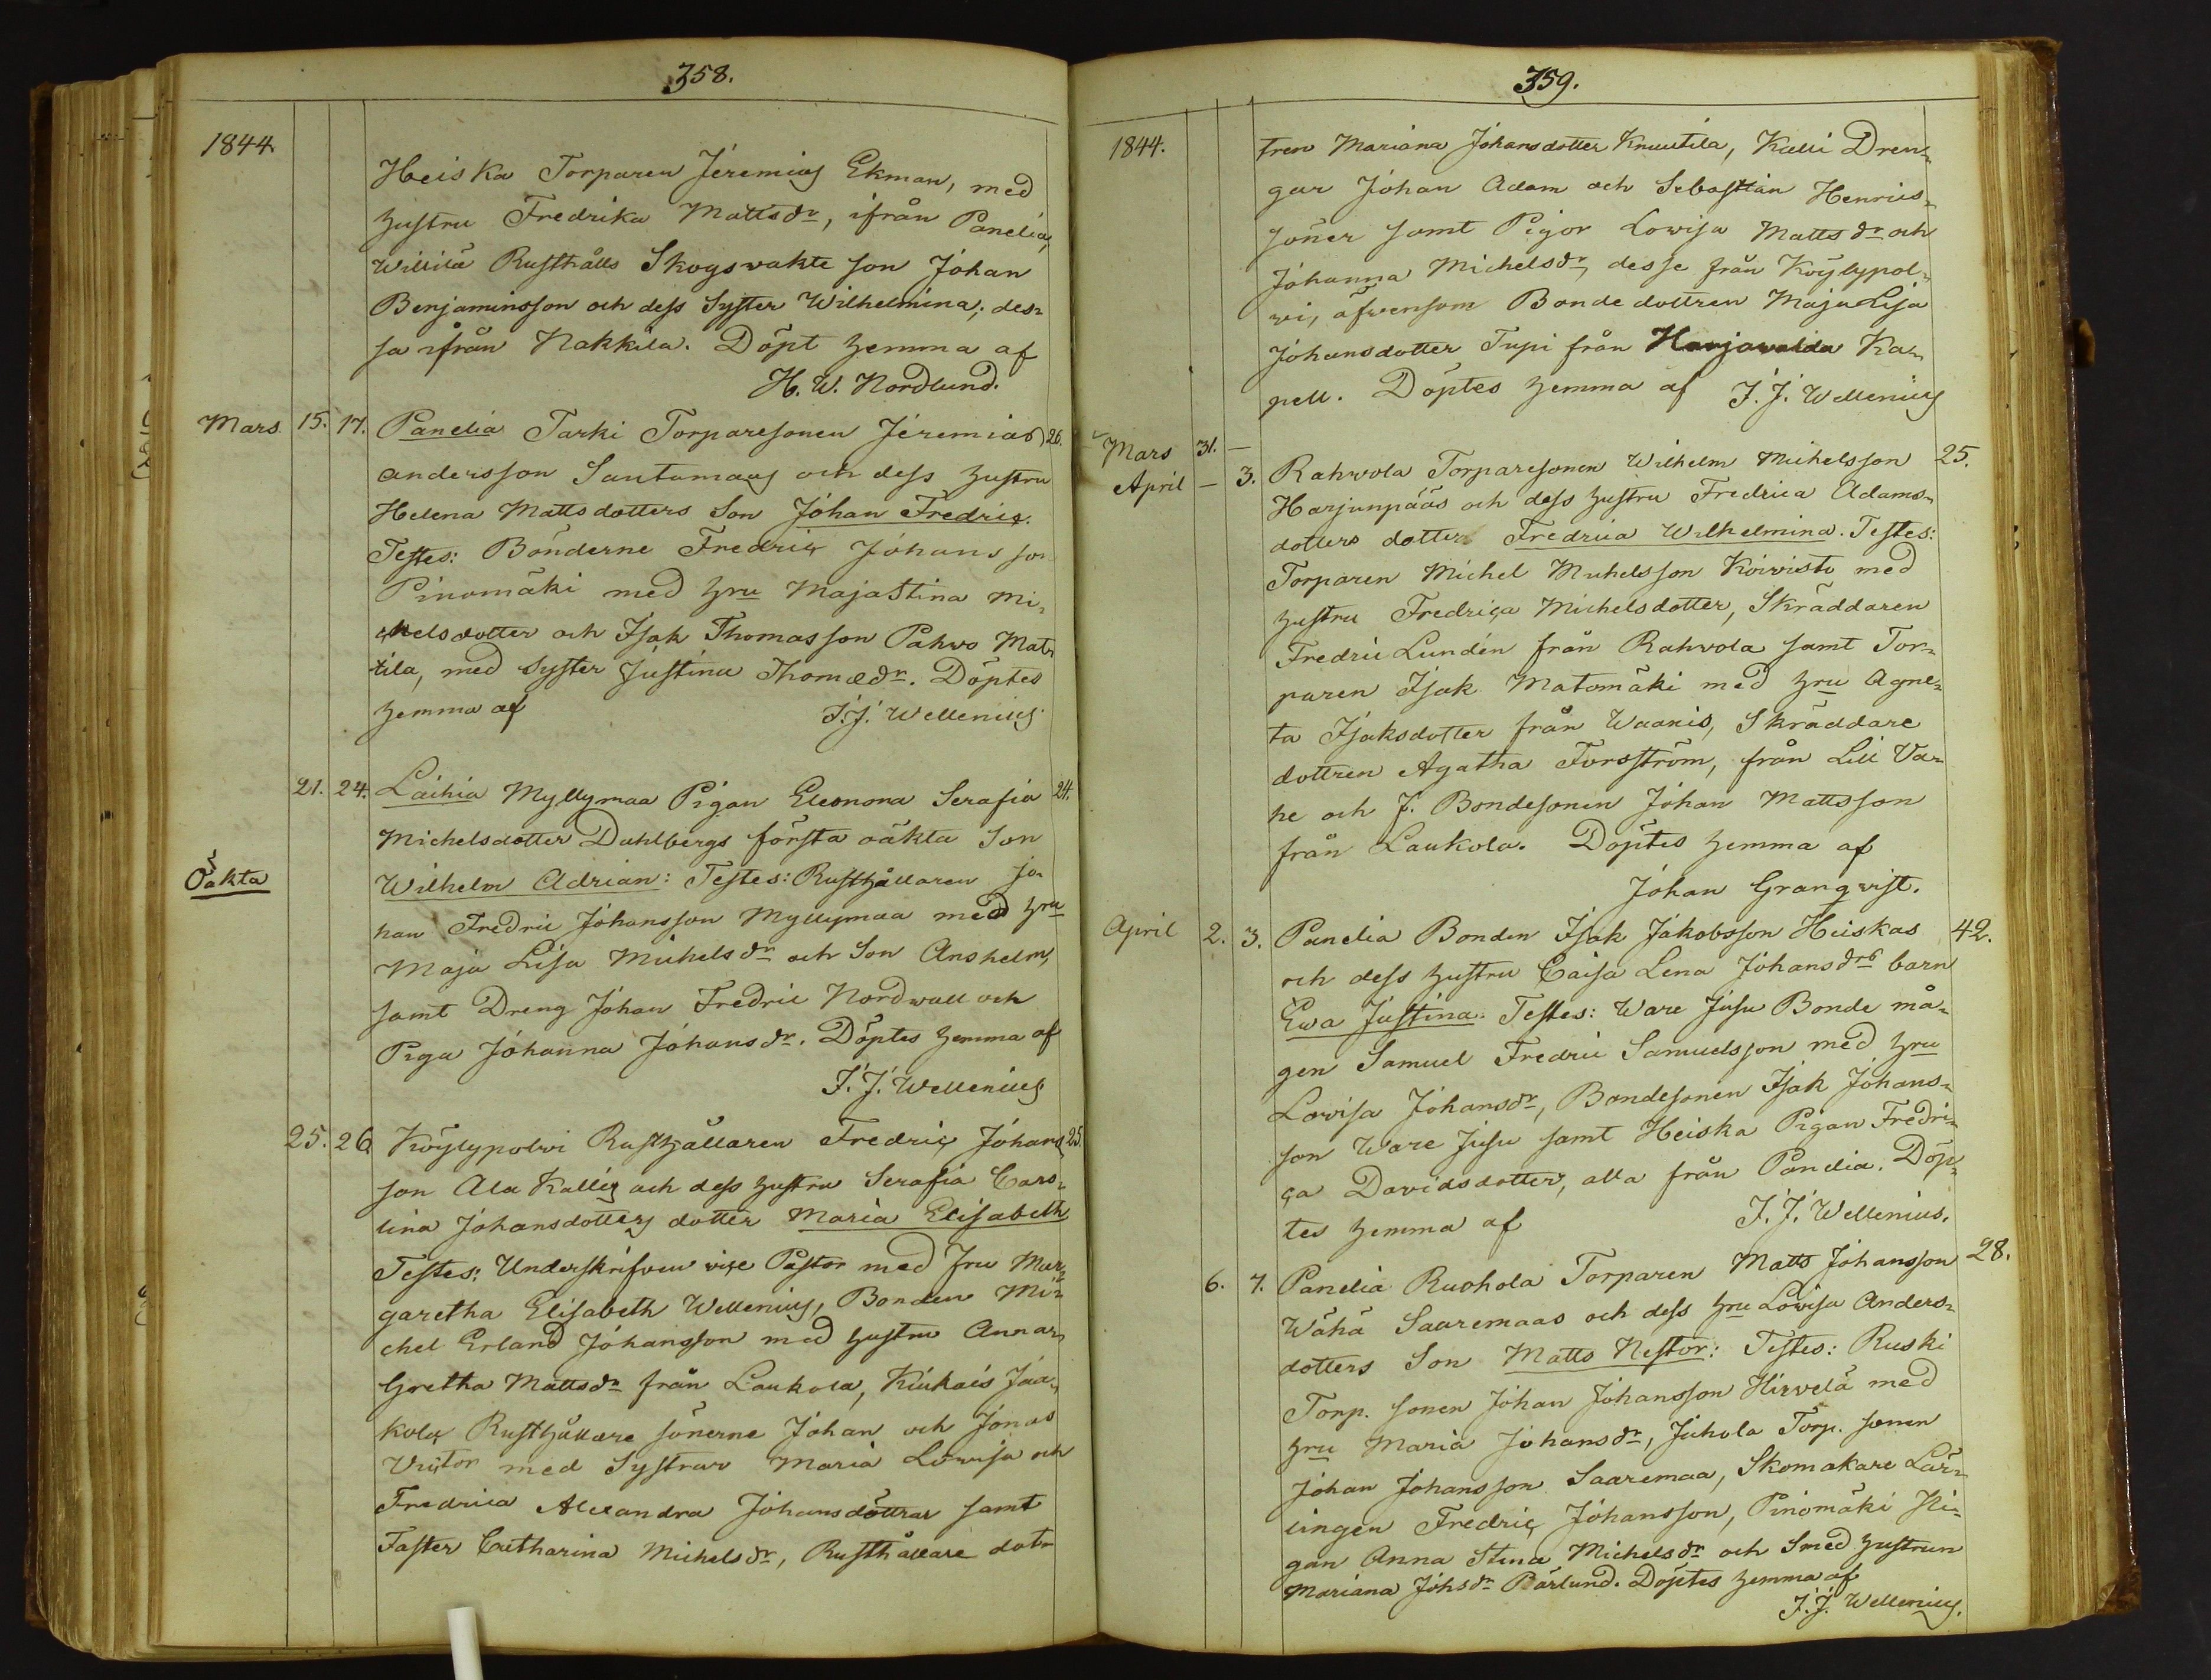 358.
1844.
Heiska Torparen Jeremias Ekman, med
hustru Fredrika Mattsdr, ifrån Panelia,
Willilä Rusthålls Skogsvakte son Johan
Benjaminsson och dess Syster Wilhelmina; des-
sa ifrån Nakkila. Döpt hemma af
H. W. Nordlund.
Mars 15. 17. Panelia Tarki Torparesonen Jeremias 26.
Andersson Santamaas och dess hustru
Helena Mattsdotters Son Johan Fredric.
Testes: Bönderne Fredric Johansson
Pinomäki med hru Maja Stina Mi-
chelsdotter och Isak Thomasson Pahwo Mat-
tila, med Syster Justina Thomædr. Döptes
hemma af J. J. Wellenius
21. 24. Laihia Myllymaa Pigan Eleonora Serafia 24.
Michelsdotter Dahlbergs första oäkta Son
Oäkta
Wilhelm Adrian: Testes: Rusthållaren Jo-
han Fredric Johansson Myllymaa med hru
Maja Lisa Michelsdr och Son Anshelm,
samt Dreng Johan Fredric Nordwall och
Piga Johanna Johansdr. Döptes hemma af
J. J. Wellenius
25. 26. Köylypolwi Rusthållaren Fredric Johans 25.
son Ala Kallis och dess hustru Serafia Caro-
lina Johansdotters dotter Maria Elisabeth
Testes: Underskrifven vice Pastor med fru Mar-
garetha Elisabeth Wellenius, Bonden Mi-
chel Erland Johansson med hustru Anna
Gretha Mattsdr från Laukola, Kiukais Jaa-
kola Rusthållare sönerne Johan och Jonas
Victor med Systrar Maria Lowisa och
Fredrica Alexandra Johansdöttrar samt
Faster Catharina Michelsdr, Rusthållare dot-
359.
1844.
tren Mariana Johansdotter Knuutila, Kalli Dren-
gar Johan Adam och Sebastian Henrics-
söner samt Pigor Lowisa Mattsdr och
Johanna Michelsdr, desse från Köylypol-
wi, äfvensom Bonde dottren Maja Lisa
Johansdotter Tupi från Harjawalda Ka-
pell. Döptes hemma af J. J. Wellenius
Mars 31. —
April — 3. Rahvola Torparesonen Wilhelm Michelsson 25.
Harjunpääs och dess hustru Fredrica Adams-
dotters dotter Fredrica Wilhelmina. Testes:
Torparen Michel Michelsson Koivisto med
hustru Fredrica Michelsdotter, Skräddaren
Fredric Lundén från Rahvola samt Tor-
paren Isak Matomäki med hru Agne-
ta Isaksdotter från Waanis, Skräddare
dottren Agatha Forsström, från Lill Var-
he och J. Bondesonen Johan Mattsson
från Laukola. Döptes hemma af
Johan Granqvist.
April 2. 3. Panelia Bonden Isak Jakobsson Heiskas 42.
och dess hustru Caisa Lena Johansdrs barn
Ewa Justina. Testes: Ware Jusu Bonde må-
gen Samuel Fredric Samuelsson med hru
Lovisa Johansdr, Bondesonen Isak Johans-
son Ware Jusu samt Heiska Pigan Fredri-
ca Davidsdotter, alla från Panelia. Döp-
tes hemma af J. J. Wellenius.
6. 7. Panelia Ruohola Torparen Matts Johansson 28.
Wähä Saaremaas och dess hru Lovisa Anders-
dotters Son Matts Nestor: Testes: Ruski
Torp. sonen Johan Johansson Hirvelä med
hru Maria Johansdr, Juhola Torp. sonen
Johan Johansson Saaremaa, Skomakare Lär-
lingen Fredric Johansson, Pinomäki Pi-
gan Anna Stina Michelsdr och Smed hustrun
Mariana Johsdr Pärlund. Döptes hemma af
J. J. Wellenius.